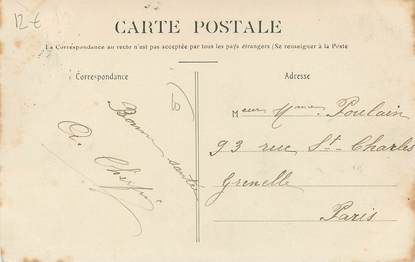 12 €
CARTE POSTALE
La Correspondance au recto n'est pas acceptée par tous les pays étrangers (Se renseigner à la Poste
Correspondance
Adresse
Bonne santé
A.
Mr et Mme Poulain
93 rue St Charles
Grenelle
Paris